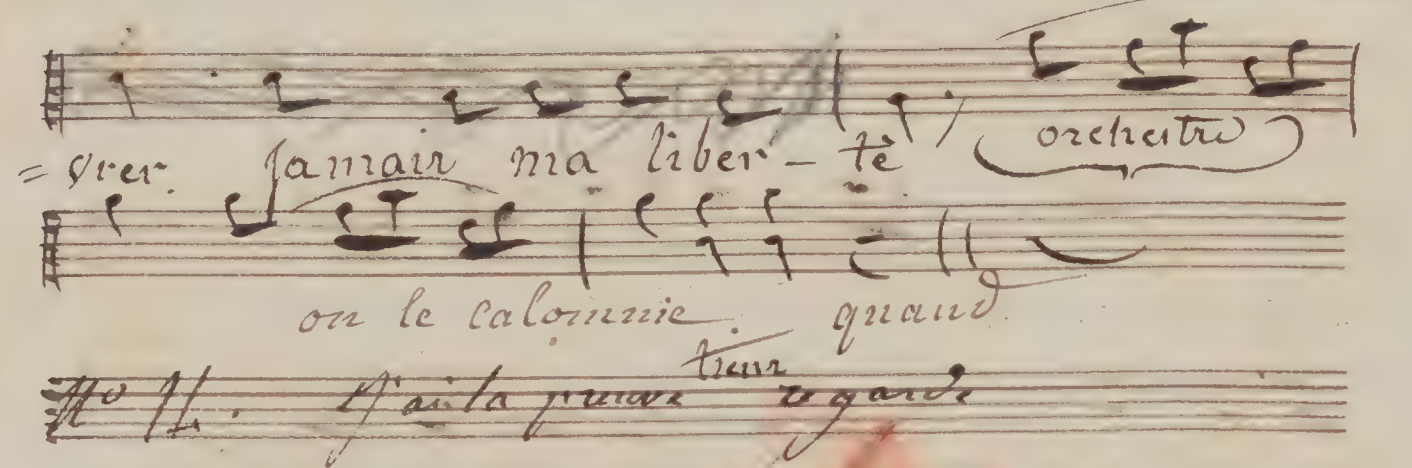 =vrer Jamais ma liber - té orchestre
on le calomnie quand
tiens
J'ai la preuve regarde